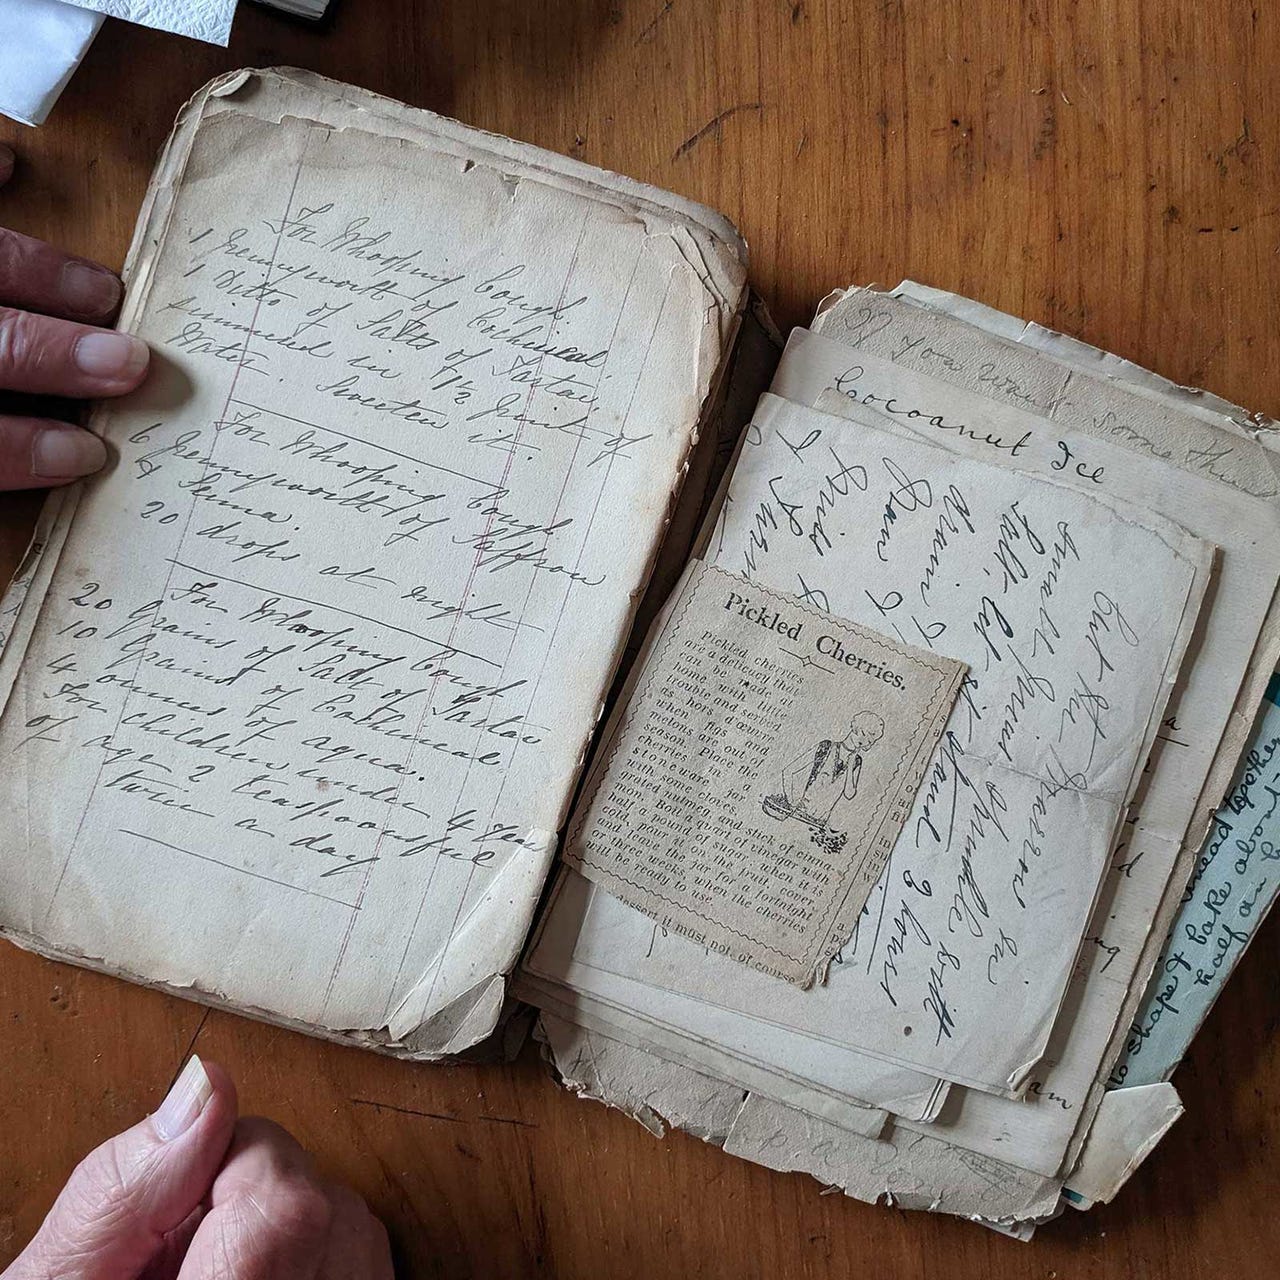 For Whooping Cough
1 Pennyworth of Cochineal
1 Ditto of Salts of Tartar
simmered in 1½ Pint of
Water. Sweeten it.
For Whooping Cough
6 Pennyworth of Saffron
4 Senna.
20 drops at night
For Whooping Cough
20 Grains of Salts of Tartar
10 Grains of Cochineal
4 ounces of aqua.
For children under 4 years
of age 2 teaspoonsful
twice a day
If you want some
Cocoanut Ice
Cut the Marrow in
small pieces sprinkle with
Salt, let it stand 2 hours
drain
Pickled Cherries.
Pickled cherries
are a delicacy that
can be made at
home with little
trouble and served
as hors d'œuvre
when figs and
melons are out of
season. Place the
cherries in a
stoneware jar
with some cloves,
grated nutmeg, and stick of cinna-
mon. Boil a quart of vinegar with
half a pound of sugar, when it is
cold, pour it on the fruit, cover
and leave the jar for a fortnight
or three weeks, when the cherries
will be ready to use.
dessert it must not, of course
knead together
to shape & bake about
half an